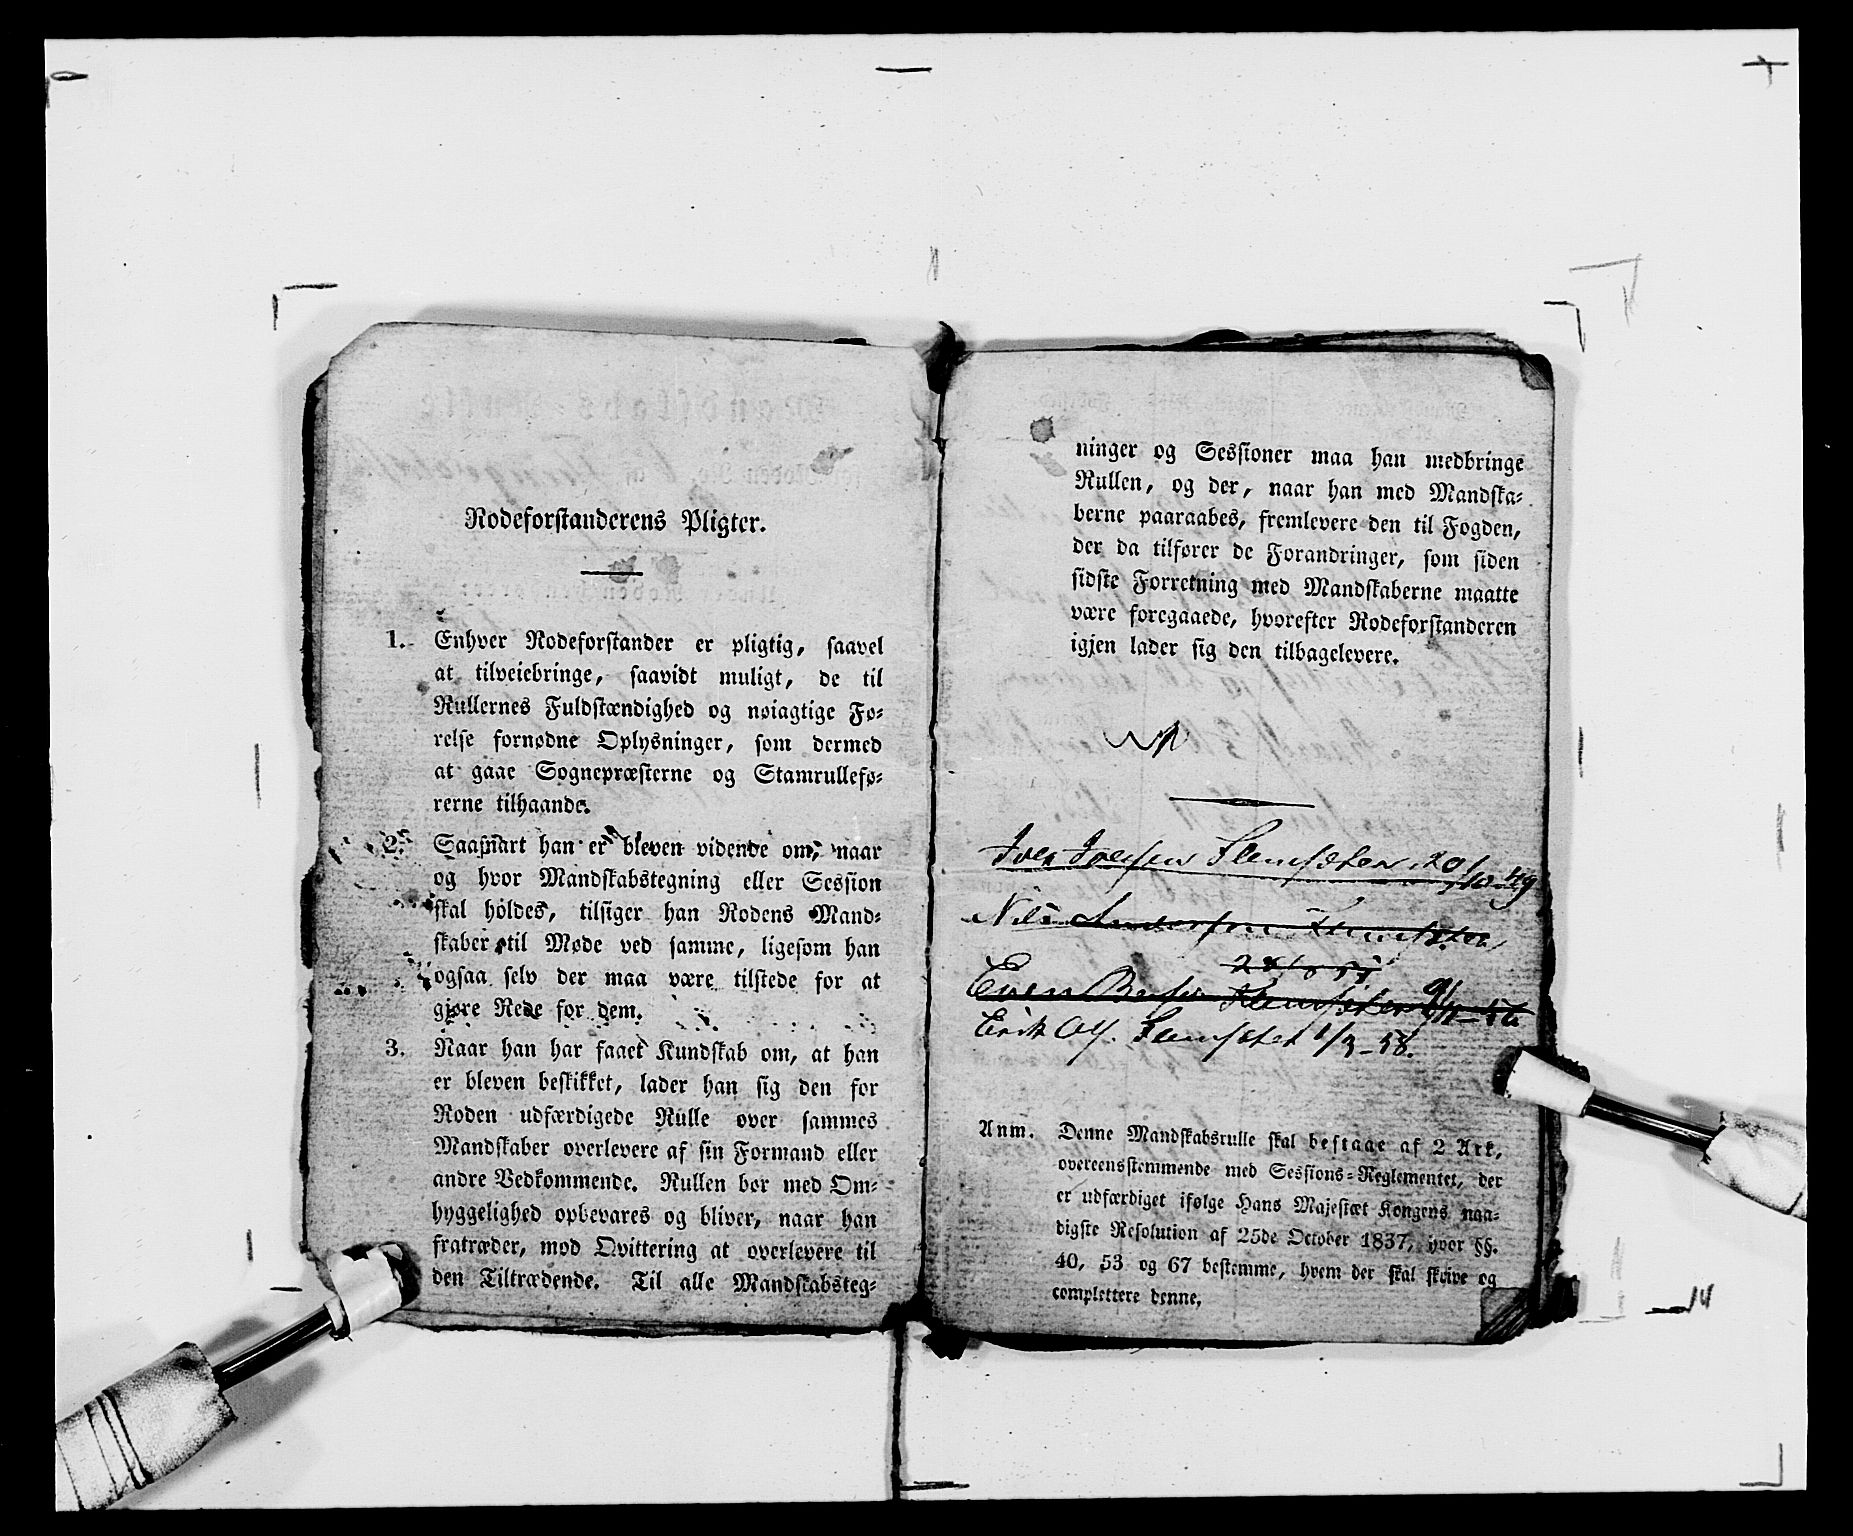 Rodeforstanderens Pligter.
1. Enhver Rodeforstander er pligtig, saavel
at tilveiebringe, saavidt muligt, de til
Rullernes Fuldstændighed og nøiagtige Fø-
relse fornødne Oplysninger, som dermed
at gaae Sognepræsterne og Stamrullefø-
rerne tilhaande.
2. Saasnart han er bleven vidende om, naar
og hvor Mandskabstegning eller Session
skal holdes, tilsiger han Rodens Mand-
skaber til Møde ved samme, ligesom han
ogsaa selv der maa være tilstede for at
gjøre Rede for dem.
3. Naar han har faaet Kundskab om, at han
er bleven beskikket, lader han sig den for
Roden udfærdigede Rulle over sammes
Mandskaber overlevere af sin Formand eller
andre Vedkommende. Rullen bør med Om-
hyggelighed opbevares og bliver, naar han
fratræder, mod Qvittering at overlevere til
den Tiltrædende. Til alle Mandskabsteg-
ninger og Sessioner maa han medbringe
Rullen, og der, naar han med Mandska-
berne paaraabes, fremlevere den til Fogden,
der da tilfører de Forandringer, som siden
sidste Forretning med Mandskaberne maatte
være foregaaede, hvorefter Rodeforstanderen
igjen lader sig den tilbagelevere.
Iver Iversen 20/10-49
Nils Andersen
Even
Erik Ols. 1/3-58.
Anm. Denne Mandskabsrulle skal bestaae af 2 Ark,
overeensstemmende med Sessions-Reglementet, der
er udfærdiget ifølge Hans Majestæt Kongens naa-
digste Resolution af 25de October 1837, hvor §§.
40, 53 og 67 bestemme, hvem der skal skrive og
complettere denne.
14